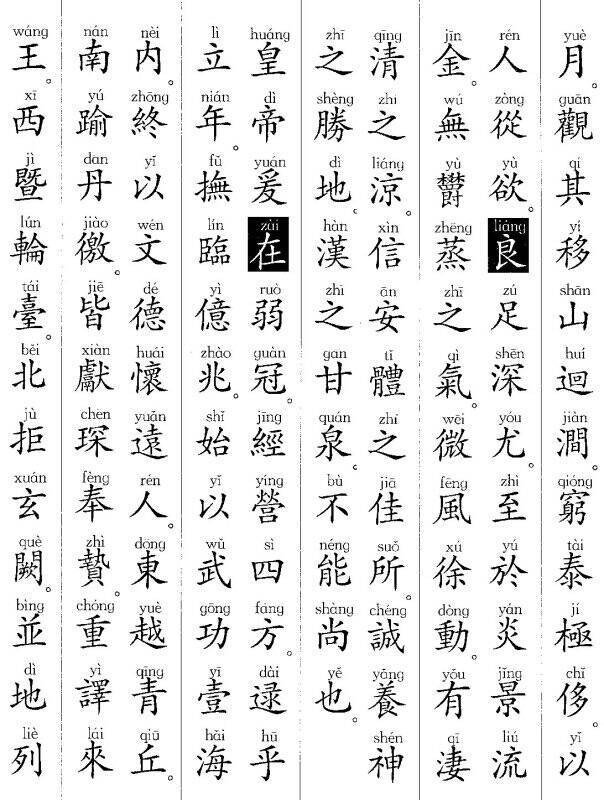 yuè 月 guān 觀 qí 其 yí 移 shān 山 huí 迴 jiàn 澗。 qióng 窮 tài 泰 jí 極 chǐ 侈。 yǐ 以
rén 人 zòng 從 yù 欲。 liáng 良 zú 足 shēn 深 yóu 尤。 zhì 至 yú 於 yán 炎 jǐng 景 liú 流
jīn 金。 wú 無 yù 鬱 zhēng 蒸 zhī 之 qì 氣。 wēi 微 fēng 風 xú 徐 dòng 動。 yǒu 有 qī 淒
qīng 清 zhī 之 liáng 涼。 xìn 信 ān 安 tǐ 體 zhī 之 jiā 佳 suǒ 所。 chéng 誠 yǎng 養 shén 神
zhī 之 shèng 勝 dì 地。 hàn 漢 zhī 之 gān 甘 quán 泉。 bù 不 néng 能 shàng 尚 yě 也。
huáng 皇 dì 帝 yuán 爰 zài 在 ruò 弱 guàn 冠。 jīng 經 yíng 營 sì 四 fāng 方。 dài 逯 hū 乎
lì 立 nián 年。 fǔ 撫 lín 臨 yì 億 zhào 兆。 shǐ 始 yǐ 以 wǔ 武 gōng 功 yī 壹 hǎi 海
nèi 内。 zhōng 終 yǐ 以 wén 文 dé 德 huái 懷 yuǎn 遠 rén 人。 dōng 東 yuè 越 qīng 青 qiū 丘。
nán 南 yú 踰 dān 丹 jiào 徼。 jiē 皆 xiàn 獻 chēn 琛 fèng 奉 zhì 贄。 chóng 重 yì 譯 lái 來
wáng 王。 xī 西 jì 暨 lún 輪 tái 臺。 běi 北 jù 拒 xuán 玄 què 闕。 bìng 並 dì 地 liè 列